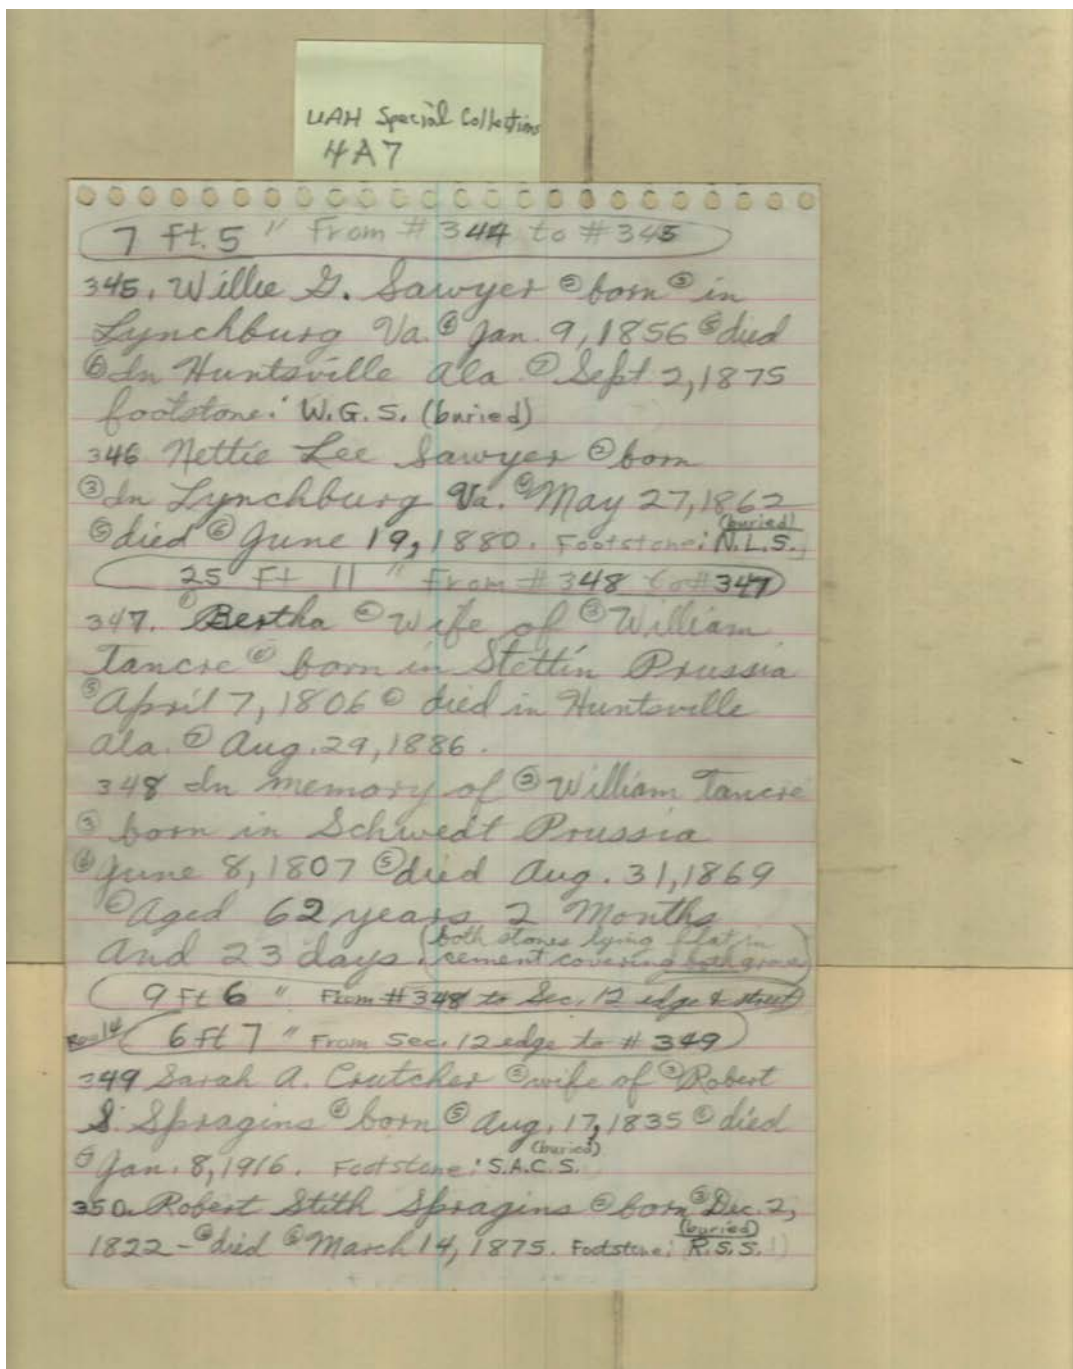 UAH Special Collections
4A7
7 ft. 5 " From # 344 to # 345
345. Willie G. Sawyer ② born ③ in
Lynchburg Va. ④ Jan. 9, 1856 ⑤ died
⑥ In Huntsville Ala. ⑦ Sept 2, 1875
footstone: W.G.S. (buried)
346 Nettie Lee Sawyer ② born
③ In Lynchburg Va. ④ May 27, 1862
⑤ died ⑥ June 19, 1880. Footstone: N.L.S. (buried)
25 Ft 11 " From # 348 to # 347
347. ① Bertha ② Wife of ③ William
Tancre ④ born in Stettin Prussia
⑤ April 7, 1806 ⑥ died in Huntsville
Ala. ⑦ Aug. 29, 1886.
348 In memory of ② William Tancre
③ born in Schwedt Prussia
④ June 8, 1807 ⑤ died Aug. 31, 1869
⑥ Aged 62 years 2 Months
And 23 days. (both stones lying flat in
cement covering both graves)
9 Ft 6 " From # 348 to Sec. 12 edge & street
6 ft 7 " From Sec. 12 edge to # 349
349 Sarah A. Crutcher ② wife of ③ Robert
S. Spragins ④ born ⑤ Aug. 17, 1835 ⑥ died
⑦ Jan. 8, 1916. Footstone: S.A.C.S. (buried)
350. Robert Stith Spragins ② born ③ Dec. 2,
1822 - ④ died ⑤ March 14, 1875. Footstone: R.S.S. (buried)